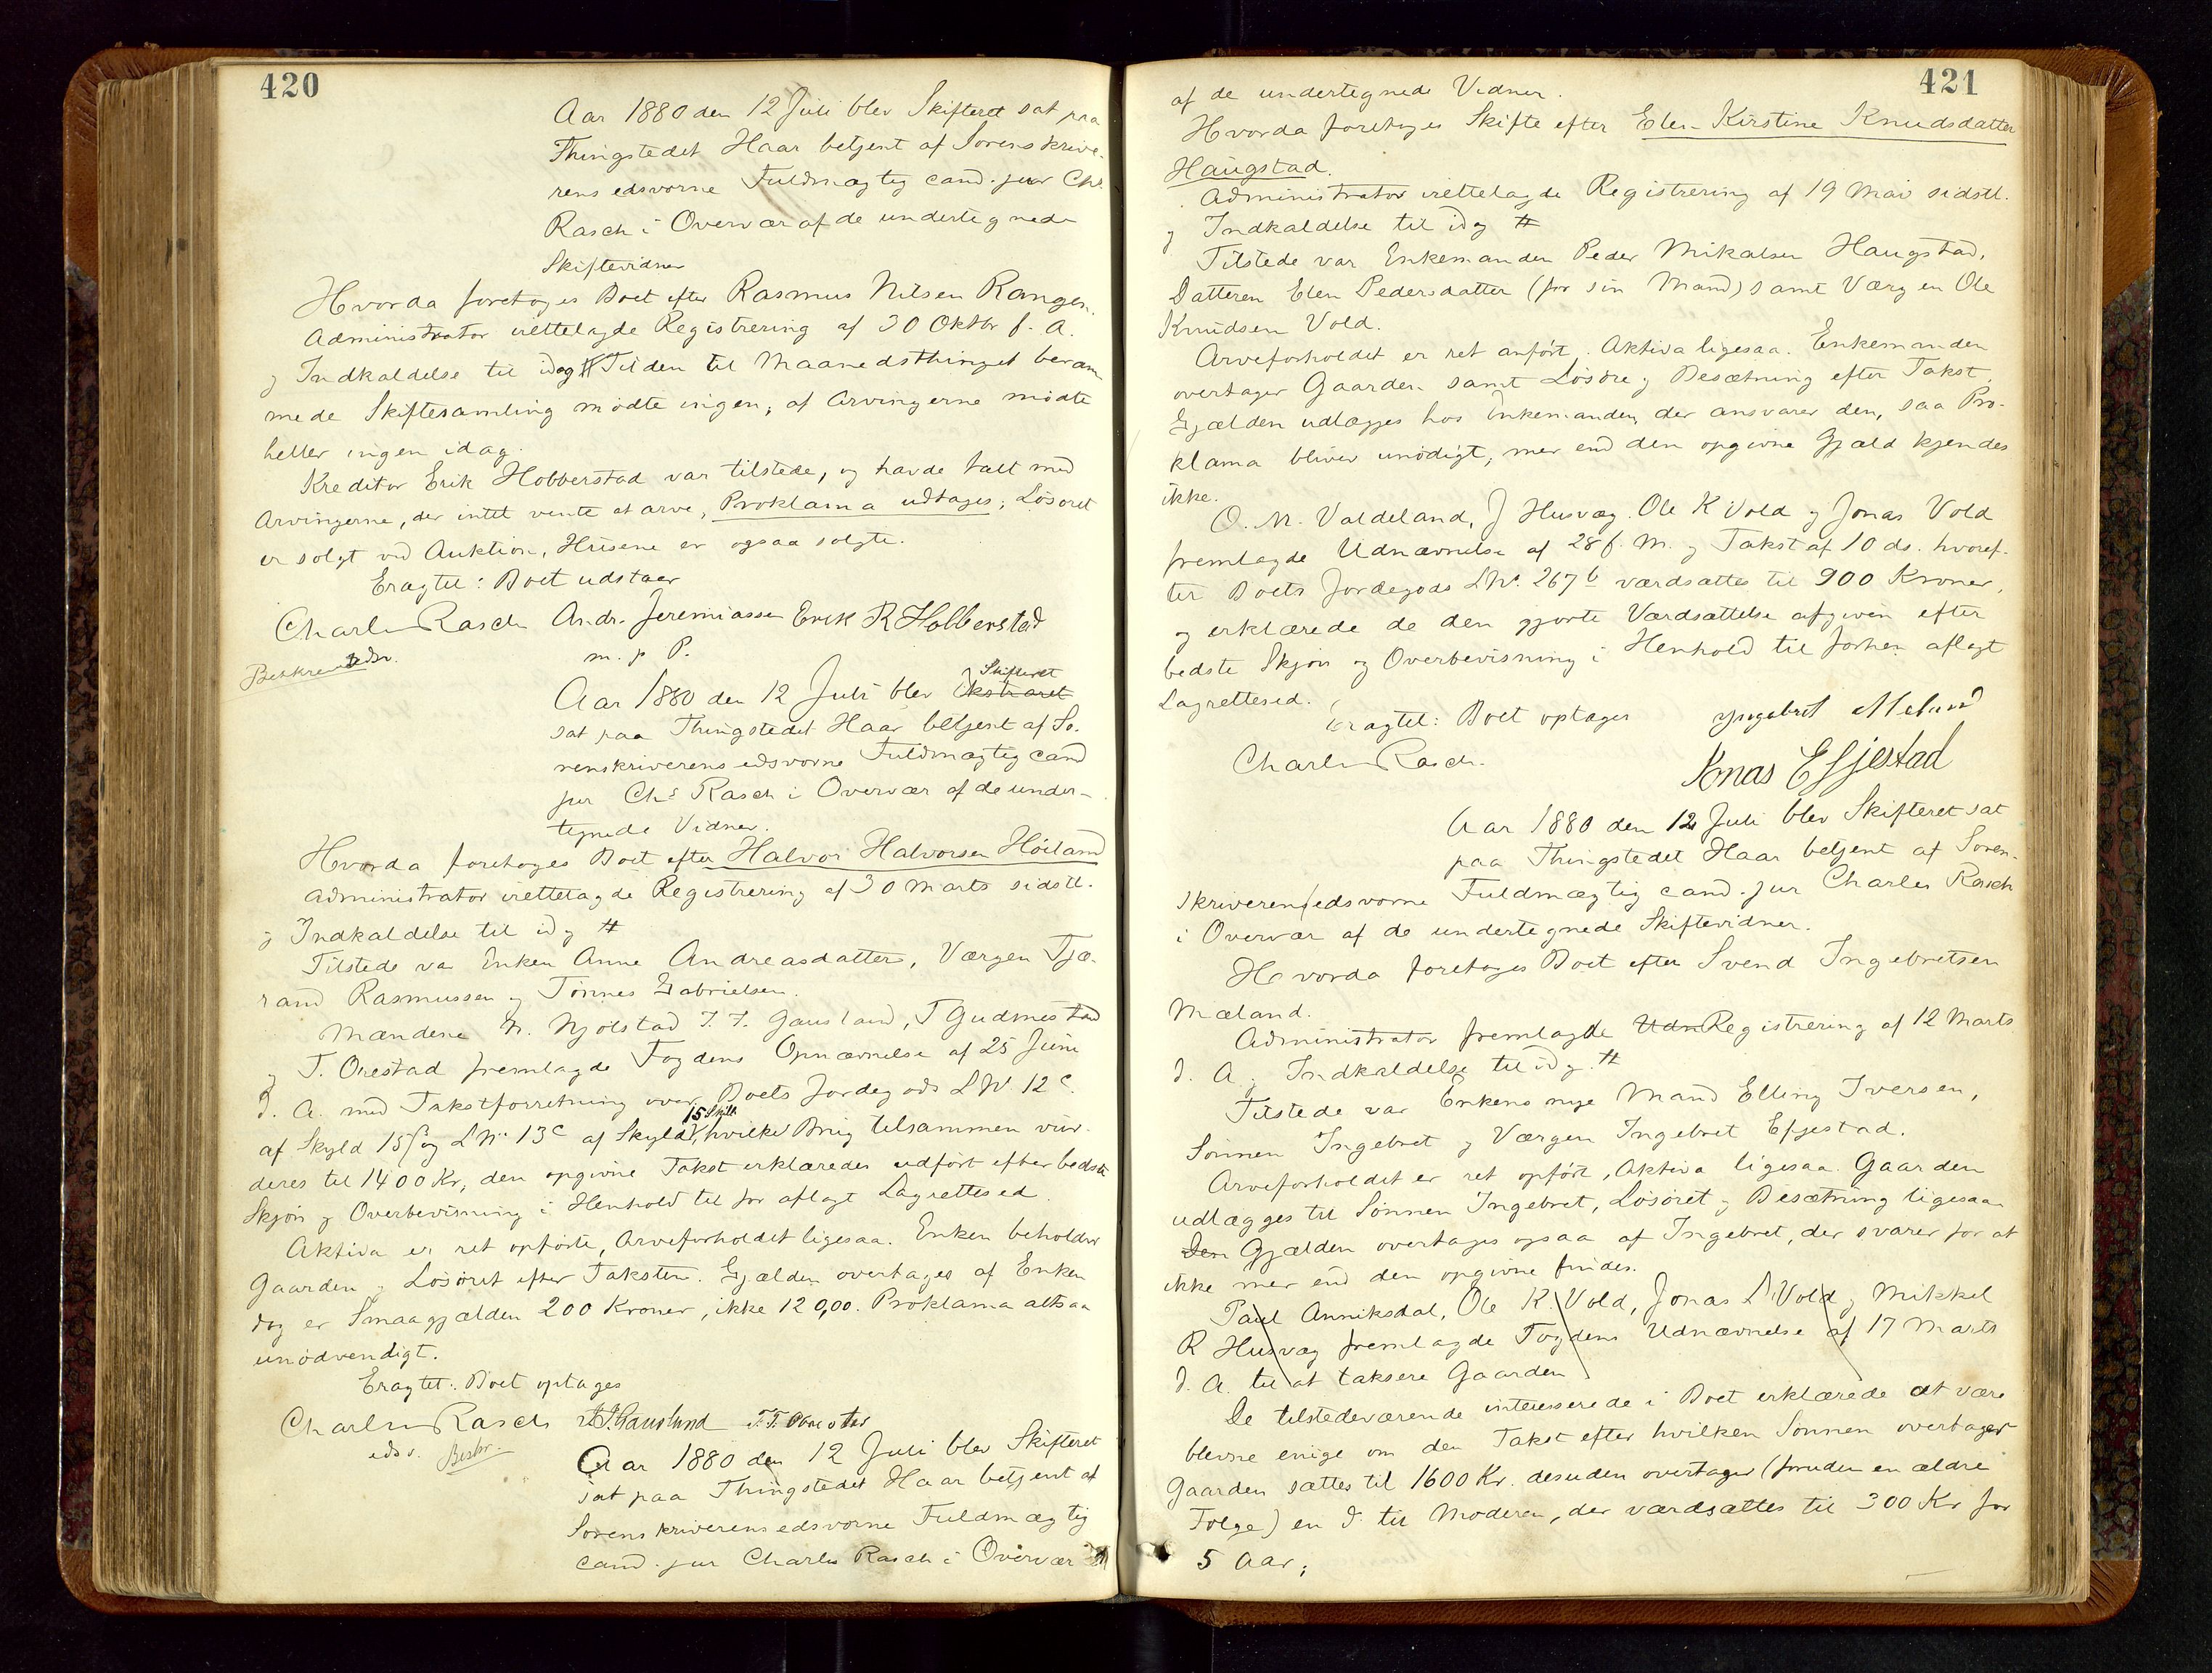 420
Aar 1880 den 12 Juli blev Skifteret sat paa
Thingstedet Haar betjent af Sorenskrive-
rens edsvorne Fuldmægtig cand. jur Chs.
Rasch i Overvær af de undertegnede
Skiftevidner
Hvorda foretoges Boet efter Rasmus Nilsen Ranges.
Administrator irettelagde Registrering af 30 Oktbr f. A.
og Indkaldelse til idag # Til den til Maanedsthinget beram-
mede Skiftesamling mødte ingen, af Arvingerne mødte
heller ingen idag.
Kreditor Erik Hobberstad var tilstede, og havde talt med
Arvingerne, der intet vente at arve, Proklama udtages; Løsøret
er solgt ved Auktion, Husene er ogsaa solgte.
Eragtet: Boet udstaar
Charles Rasch Andr. Jeremiassen Erik R Hobberstad
edsv. m. p P.
Aar 1880 den 12 Juli blev Ekstraret Skifteret
sat paa Thingstedet Haar betjent af So-
renskriverens edsvorne Fuldmægtig cand
jur Chs Rasch i Overvær af de under-
tegnede Vidner.
Hvorda foretoges Boet efter Halvor Halvorsen Høiland
Administrator irettelagde Registrering af 30 Marts sidstl.
og Indkaldelse til idag #
Tilstede var Enken Anne Andreasdatter, Værgen Tjø-
rand Rasmussen og Tønnes Gabrielsen.
Mændene N. Njølstad T. T. Gausland, T Gudmestad
og T. Orestad fremlagde Fogdens Opnævnelse af 25 Juni
d. A. med Takstforretning over Boets Jordegods L No. 12 c.
af Skyld 15 ß og L No 13 c af Skyld 15 Skill. hvilke Brug tilsammen vur-
deres til 1400 Kr, den opgivne Takst erklæredes udført efter bedste
Skjøn og Overbevisning i Henhold til før aflagt Lagrettesed.
Aktiva er ret opførte, Arveforholdet ligesaa. Enken beholder
Gaarden og Løsøret efter Taksten. Gjælden overtages af Enken
dog er Smaagjælden 200 Kroner, ikke 120,00. Proklama altsaa
unødvendigt.
Eragtet: Boet optages
Charles Rasch T. T. Gausland T. T. Orrestad
edsv. Beskr.
Aar 1880 den 12 Juli blev Skifteret
sat paa Thingstedet Haar betjent af
Sorenskriverens edsvorne Fuldmægtig
cand. jur Charles Rasch i Overvær
421
af de undertegnede Vidner.
Hvorda foretoges Skifte efter Elen Kirstine Knudsdatter
Haugstad.
Administrator irettelagde Registrering af 19 Mai sidstl.
og Indkaldelse til idag #
Tilstede var Enkemanden Peder Mikalsen Haugstad,
Datteren Elen Pedersdatter (for sin Mand) samt Værgen Ole
Knudsen Vold.
Arveforholdet er ret anført, Aktiva ligesaa. Enkemanden
overtager Gaarden samt Løsøre og Besætning efter Takst,
Gjælden udlægges hos Enkemanden, der ansvarer den, saa Pro-
klama bliver unødigt, mer end den opgivne Gjæld kjendes
ikke.
O. M. Valdeland, J Husvæg, Ole K Vold og Jonas Vold
fremlagde Udnævnelse af 28 f. M. og Takst af 10 ds. hvoref-
ter Boets Jordegods L No. 267 b værdsattes til 900 Kroner,
og erklærede de den gjorte Værdsættelse afgiven efter
bedste Skjøn og Overbevisning i Henhold til forhen aflagt
Lagrettesed.
Eragtet: Boet optages Yngebret Meland
Charles Rasch. Jonas Efjestad
Aar 1880 den 12 Juli blev Skifteret sat
paa Thingstedet Haar betjent af Soren-
skriverens edsvorne Fuldmægtig cand. jur Charles Rasch
i Overvær af de undertegnede Skiftevidner.
Hvorda foretoges Boet efter Svend Ingebretsen
Mæland.
Administrator fremlagde Udn Registrering af 12 Marts
d. A. og Indkaldelse til idag. #
Tilstede var Enkens nye Mand Elling Iversen,
Sønnen Ingebret og Værgen Ingebret Efjestad.
Arveforholdet er ret opført, Aktiva ligesaa. Gaarden
udlægges til Sønnen Ingebret, Løsøret og Besætning ligesaa
Den Gjælden overtages ogsaa af Ingebret, der svarer for at
ikke mer end den opgivne findes.
Paul Anniksdal, Ole K. Vold, Jonas Vold og Mikkel
R Husvæg fremlagde Fogdens Udnævnelse af 17 Marts
d. A. til at taksere Gaarden
De tilstedeværende interesserede i Boet erklærede at være
blevne enige om den Takst efter hvilken Sønnen overtager
Gaarden sættes til 1600 Kr. desuden overtager (foruden en ældre
Følge) en d. til Moderen, der værdsættes til 300 Kr for
5 Aar;